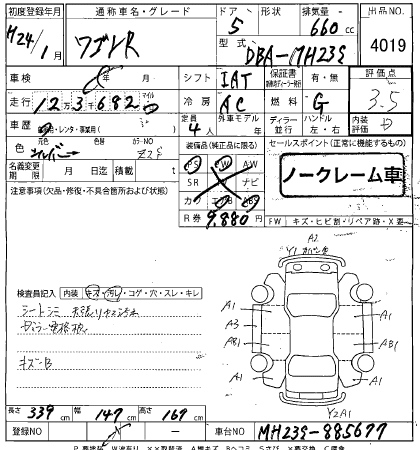 初度登録年月 通称車名・グレード ドア 形状 排気量 出品NO.
H24年1月 ワゴンR 5 660cc 4019
型式 DBA-MH23S
車検 年 月 シフト IAT 保証書 有・無 評価点
走行 12万3千682 マイル 冷房 AC 燃料 G 3.5
車歴 自家用・レンタ・事業用 定員 4人 外車モデル 年 ディーラー 並行 ハンドル 左・右 内装評価 D
色 元色 シルバー 色替 カラーNO Z2S 装備品(純正品に限る) セールスポイント(正常に機能するもの)
名義変更期限 月 日迄 積載 t PS PW
SR AW ナビ
注意事項(欠品・修復・不具合箇所および状態) カワ エアB ABS
ノークレーム車
R券 9,880円 FW キズ・ヒビ割・リペア跡・X要
検査員記入 内装 キズ・汚レ・コゲ・穴・スレ・キレ
シートシミ
キズB
A2
Y1
A1 A1
A3 A1
AB1 AB1
A1 A1
Y2A1
長さ 339cm 幅 147cm 高さ 167cm
登録NO 車台NO MH23S-885677